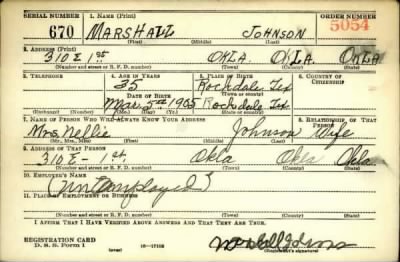 SERIAL NUMBER 1. NAME (Print) ORDER NUMBER
670 MARSHALL JOHNSON 5054
(First) (Middle) (Last)
2. ADDRESS (Print)
310 E 1st OKLA. OKLA. OKLA
(Number and street or R. F. D. number) (Town) (County) (State)
3. TELEPHONE 4. AGE IN YEARS 5. PLACE OF BIRTH 6. COUNTRY OF CITIZENSHIP
35 Rockdale, Tex
DATE OF BIRTH (Town or county)
Mar. 5th 1905 Rockdale Tex
(Exchange) (Number) (Mo.) (Day) (Yr.) (State or country)
7. NAME OF PERSON WHO WILL ALWAYS KNOW YOUR ADDRESS 8. RELATIONSHIP OF THAT PERSON
Mrs. Nellie Johnson Wife
(Mr., Mrs., Miss) (First) (Middle) (Last)
9. ADDRESS OF THAT PERSON
310 E - 1st Okla Okla Okla
(Number and street or R. F. D. number) (Town) (County) (State)
10. EMPLOYER'S NAME
(Unemployed)
11. PLACE OF EMPLOYMENT OR BUSINESS
(Number and street or R. F. D. number) (Town) (County) (State)
I AFFIRM THAT I HAVE VERIFIED ABOVE ANSWERS AND THAT THEY ARE TRUE.
REGISTRATION CARD
D. S. S. Form 1 (over) 16—17105
(Registrant's signature)